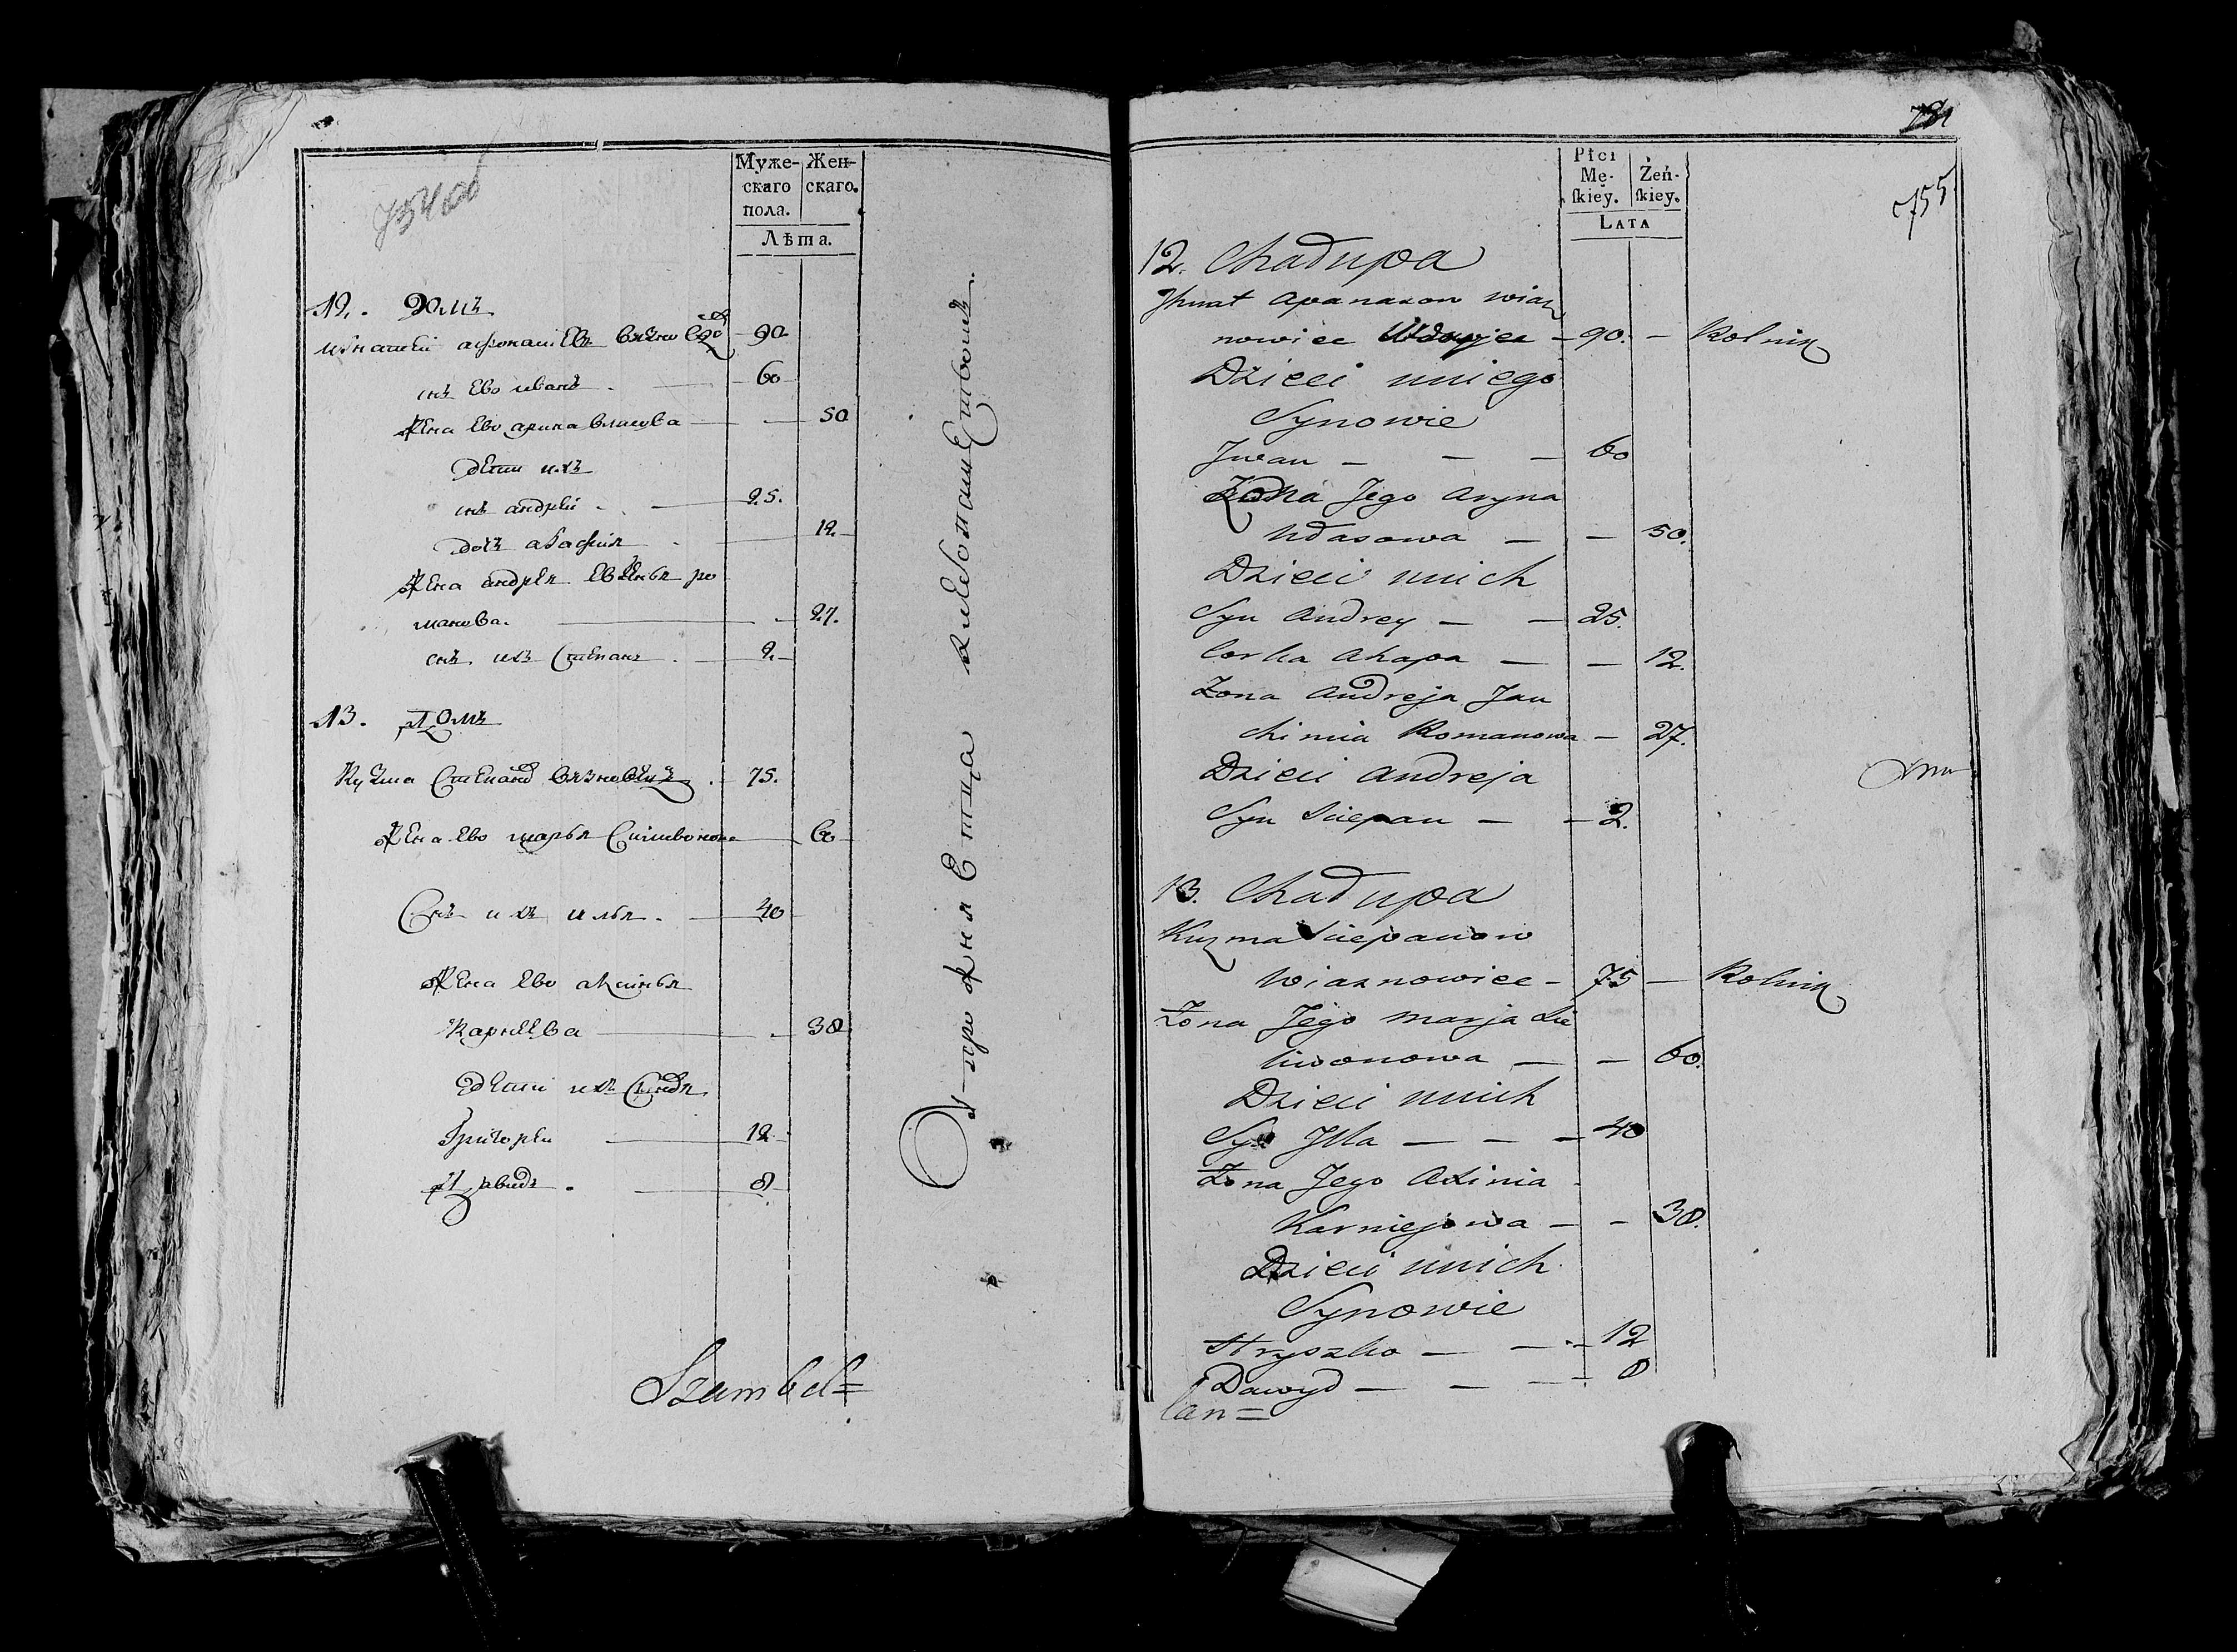 754 об
Муже-
скаго
пола.
Жен-
скаго.
Лѣта.
12. домъ
игнатей афонасіевъ вязновецъ 90
снъ ево иванъ 60
жена ево арина власова 50
дети ихъ
снъ андрей 25.
дочъ агафия 12.
жена андрея евгенья ро
манова. 27.
снъ ихъ Степанъ 2.
13. домъ
Кузма Степановъ вязновецъ 75.
жена ево марья Симионова 60
Снъ ихъ илья 40
жена ево аксинья
Карнеева 38
дети ихъ
Григорей 12
давидъ 8
Szambel=
755
Płci
Mę-
ſkiey.
Żeń-
ſkiey.
LATA
12. Chałupa
Ihnat Apanasow Wiaz
nowiec Wdowiec – 90. – Rolnik
Dzieci u niego
Synowie
Jwan – – – 60
Żona Jego Aryna
Ułasowa – – 50.
Dzieci u nich
Syn Andrey – – 25.
Corka Ahapa – – 12.
Żona Andreja Jau
himia Romanowa – 27.
Dzieci Andreja
Syn Sciepan – – 2.
13. Chałupa
Kuzma Sciepanow
Wiaznowiec – 75 – Rolnik
Żona Jego Marja
– – 60.
Dzieci u nich
Syn Jlla – – – 40
Żona Jego Axinia
Karniejowa – – 38.
Dzieci u nich
Synowie
Hryszko – – – 12
Dawyd – – – 8
lan=